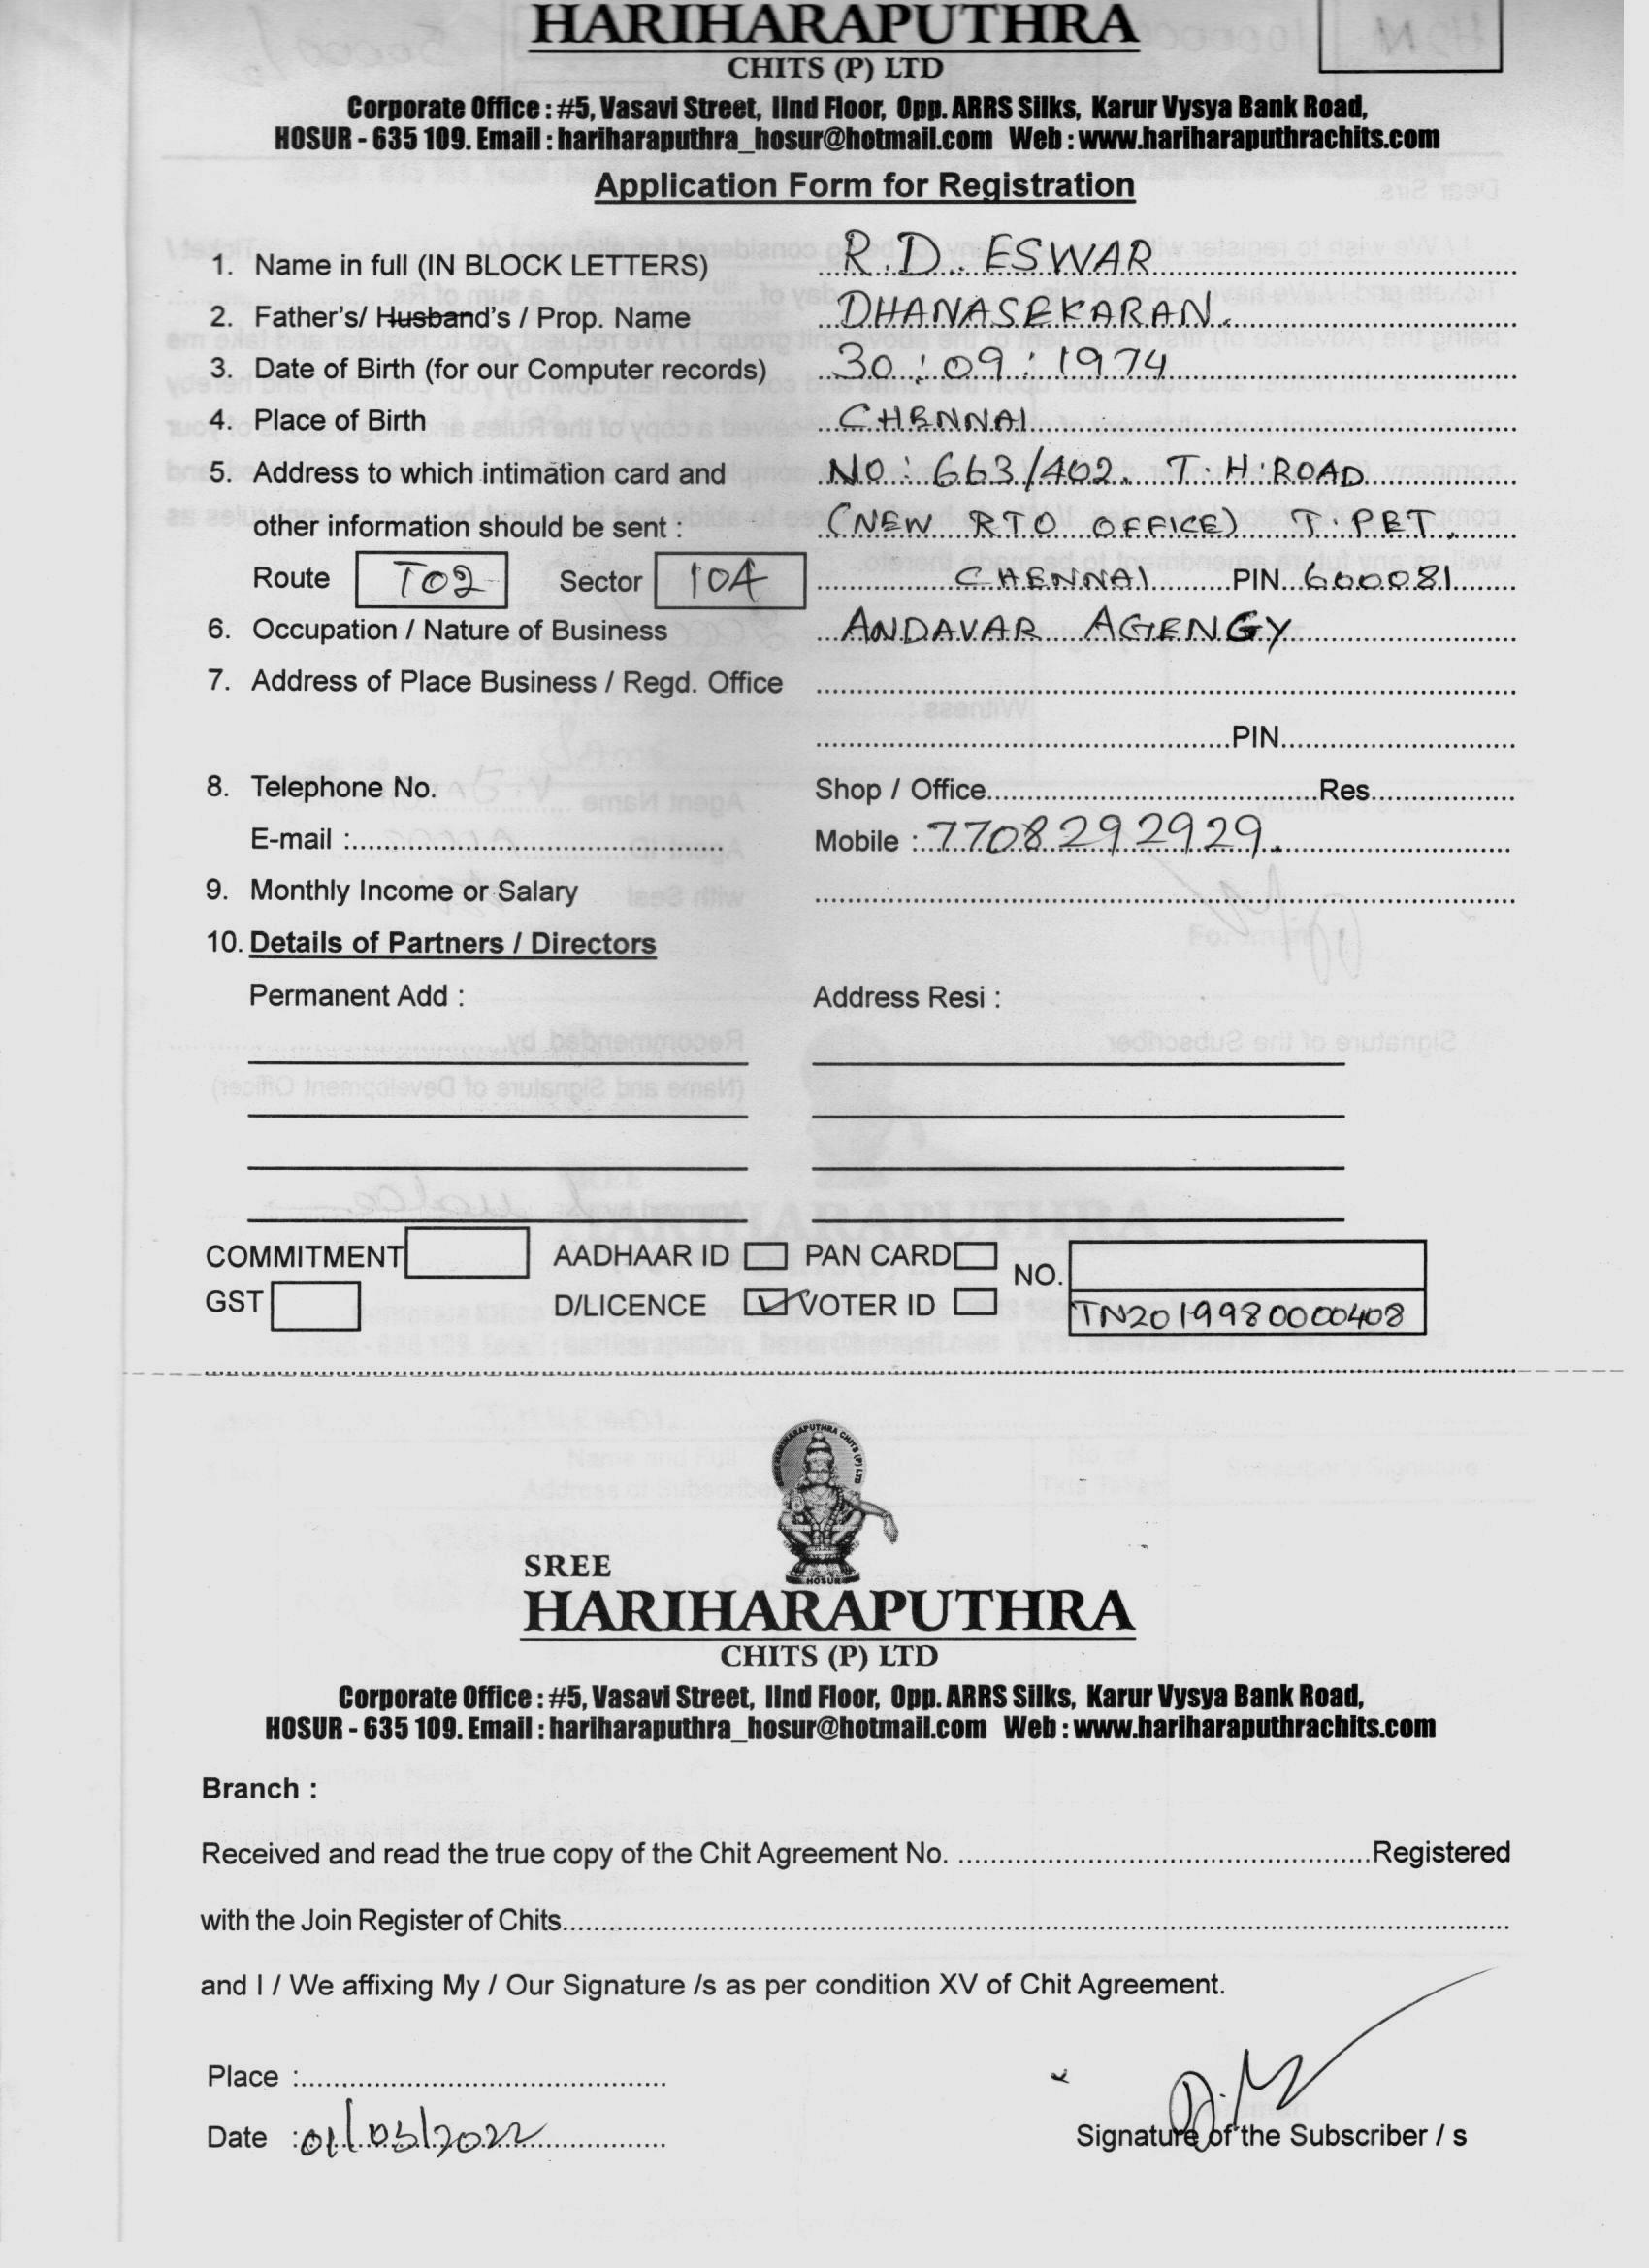 HARIHARAPUTHRA
CHITS (P) LTD
Corporate Office : #5, Vasavi Street, IInd Floor, Opp. ARRS Silks, Karur Vysya Bank Road,
HOSUR - 635 109. Email : hariharaputhra_hosur@hotmail.com Web : www.hariharaputhrachits.com
Application Form for Registration
1. Name in full (IN BLOCK LETTERS) R.D. ESWAR
2. Father's/ Husband's / Prop. Name DHANASEKARAN.
3. Date of Birth (for our Computer records) 30:09:1974
4. Place of Birth CHENNAI
5. Address to which intimation card and NO: 663/402. T.H.ROAD
other information should be sent : (NEW RTO OFFICE) T.PET,
Route T02 Sector 10A CHENNAI PIN 600081
6. Occupation / Nature of Business ANDAVAR AGENGY
7. Address of Place Business / Regd. Office
PIN
8. Telephone No. Shop / Office Res
E-mail : Mobile : 7708292929.
9. Monthly Income or Salary
10. Details of Partners / Directors
Permanent Add : Address Resi :
COMMITMENT AADHAAR ID PAN CARD NO.
GST D/LICENCE VOTER ID TN2019980000408
SREE
HARIHARAPUTHRA
CHITS (P) LTD
Corporate Office : #5, Vasavi Street, IInd Floor, Opp. ARRS Silks, Karur Vysya Bank Road,
HOSUR - 635 109. Email : hariharaputhra_hosur@hotmail.com Web : www.hariharaputhrachits.com
Branch :
Received and read the true copy of the Chit Agreement No. Registered
with the Join Register of Chits
and I / We affixing My / Our Signature /s as per condition XV of Chit Agreement.
Place :
Date : 01/03/2022
Signature of the Subscriber / s